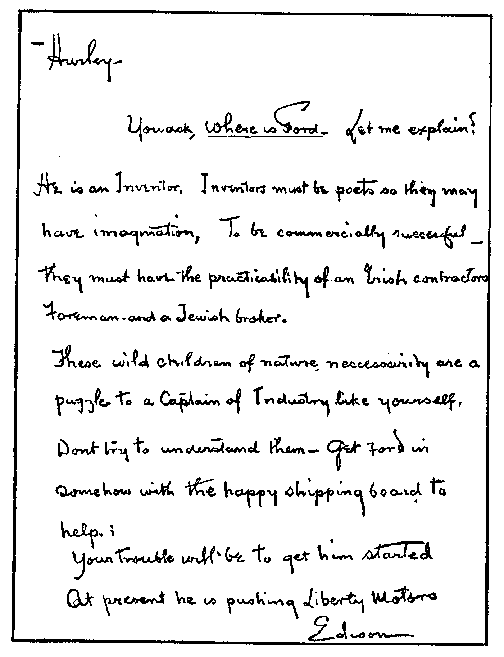 Hurley
You ask, Where is Ford. Let me explain?
He is an Inventor. Inventors must be poets so they may
have imagination, To be commercially successful
they must have the practicability of an Irish contractors
Foreman and a Jewish broker.
These wild children of nature, neccessirity are a
puzzle to a Captain of Industry like yourself.
Dont try to understand them – Get Ford in
somehow with the happy shipping board to
help. ;
Your trouble will be to get him started
At present he is pushing Liberty Motors
Edison